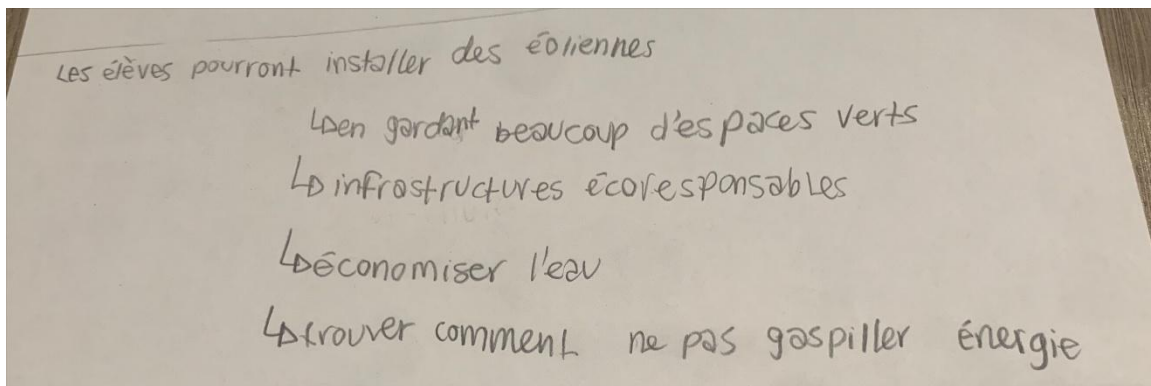 Les élèves pourront installer des éoliennes
↳ en gardant beaucoup d'espaces verts
↳ infrastructures écoresponsables
↳ économiser l'eau
↳ trouver comment ne pas gaspiller énergie